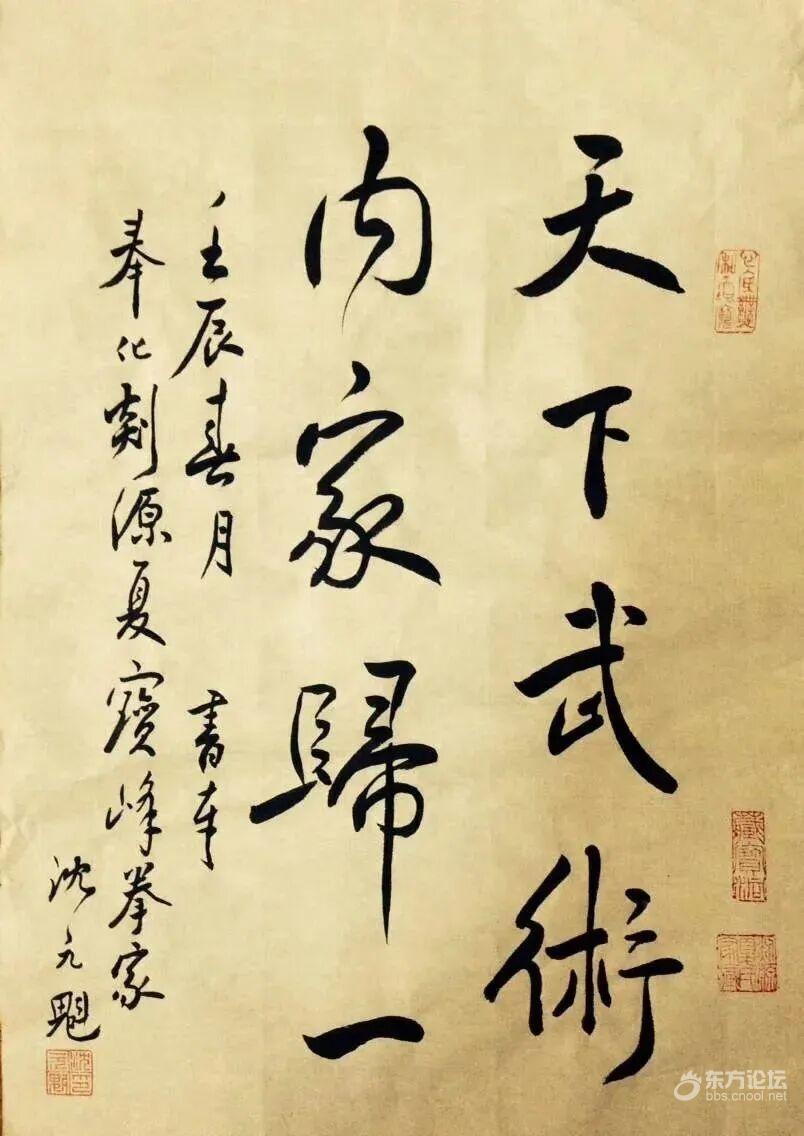 天下武術
内家歸一
壬辰春月 書奉
奉化剡源夏寶峰拳家
沈元魁
东方论坛
bbs.cnool.net